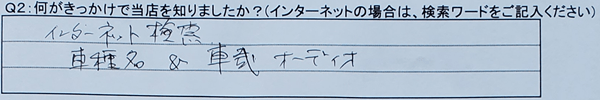 Q2:何がきっかけで当店を知りましたか?(インターネットの場合は、検索ワードをご記入ください)
インターネット検索
車種名 & 車載 オーディオ